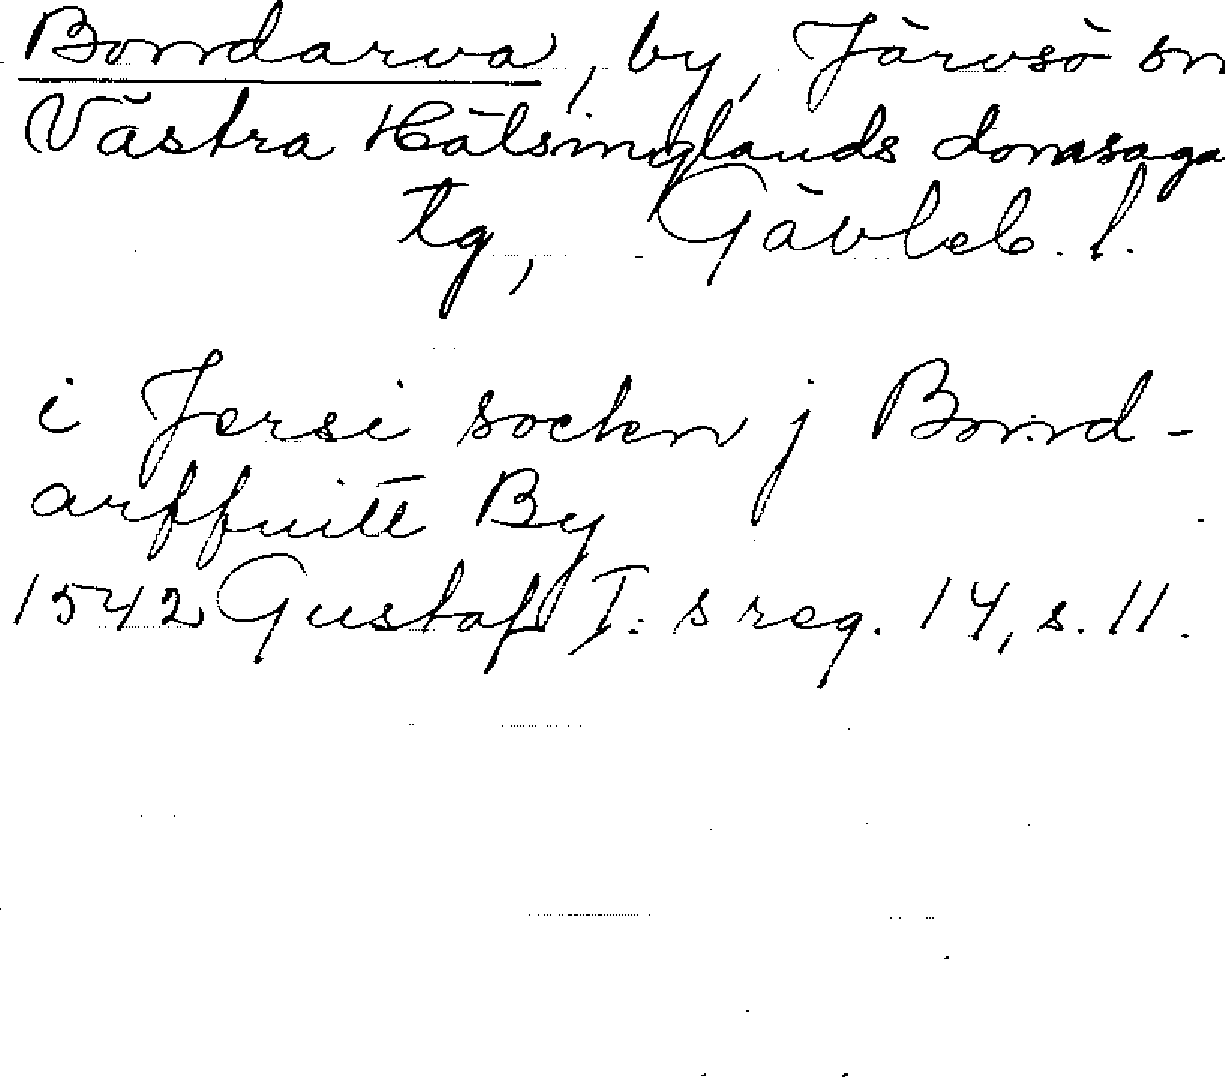 Bondarva, by, Järvsö sn
Västra Hälsinglands domsaga
tg, Gävleb. l.
i Jersi socken j Bond-
arffuitt By
1542 Gustaf I:s reg. 14, s. 11.